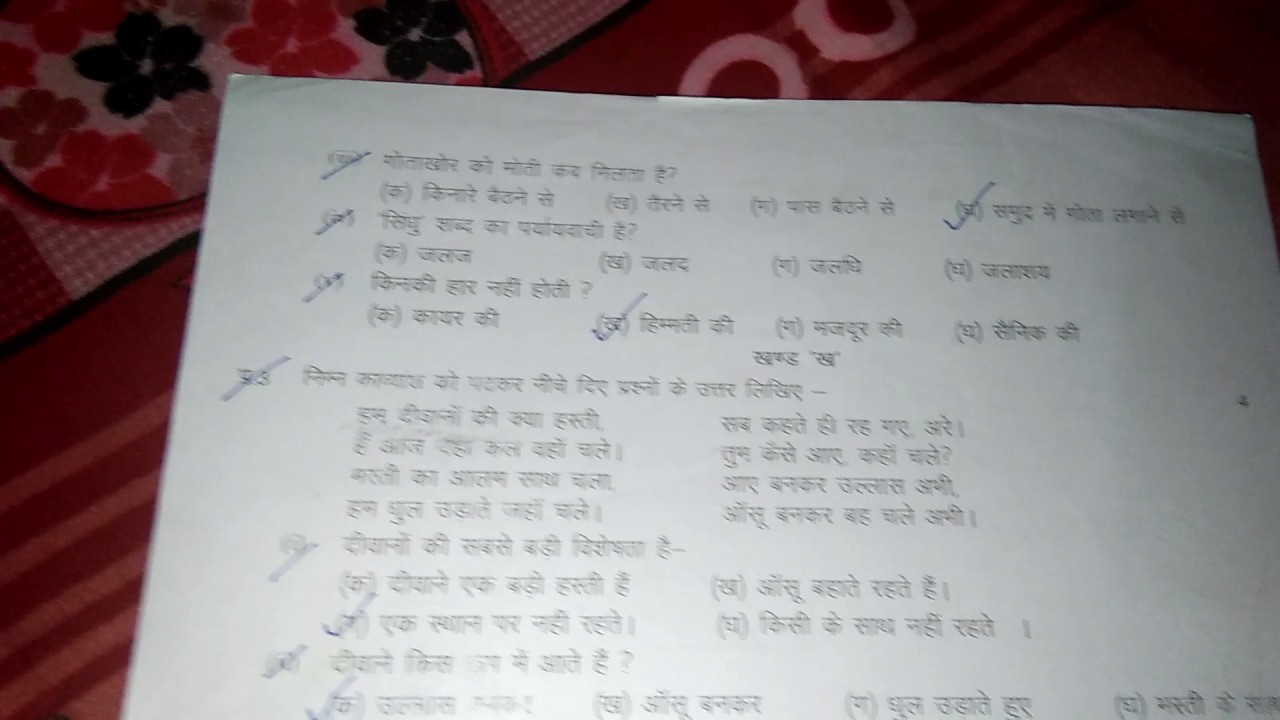 गोताखोर को मोती कब मिलता है?
(क) किनारे बैठने से (ख) तैरने से (ग) पास बैठने से (घ) समुद्र में गोता लगाने से
'सिंधु' शब्द का पर्यायवाची है?
(क) जलज (ख) जलद (ग) जलधि (घ) जलाशय
किनकी हार नहीं होती ?
(क) कायर की (ख) हिम्मती की (ग) मजदूर की (घ) सैनिक की
खण्ड 'ख'
प्र.3 निम्न काव्यांश को पढकर नीचे दिए प्रश्नों के उत्तर लिखिए –
4
हम दीवानों की क्या हस्ती, सब कहते ही रह गए, अरे।
हैं आज यहाँ कल वहाँ चले। तुम कैसे आए, कहाँ चले?
मस्ती का आलम साथ चला, आए बनकर उल्लास अभी,
हम धुल उड़ाते जहाँ चले। आँसू बनकर बह चले अभी।
दीवानों की सबसे बड़ी विशेषता है–
(क) दीवाने एक बड़ी हस्ती हैं (ख) आँसू बहाते रहते हैं।
(ग) एक स्थान पर नही रहते। (घ) किसी के साथ नहीं रहते ।
दीवाने किस रूप में आते हैं ?
(क) उल्लास बनकर (ख) आँसू बनकर (ग) धुल उडाते हुए (घ) मस्ती के